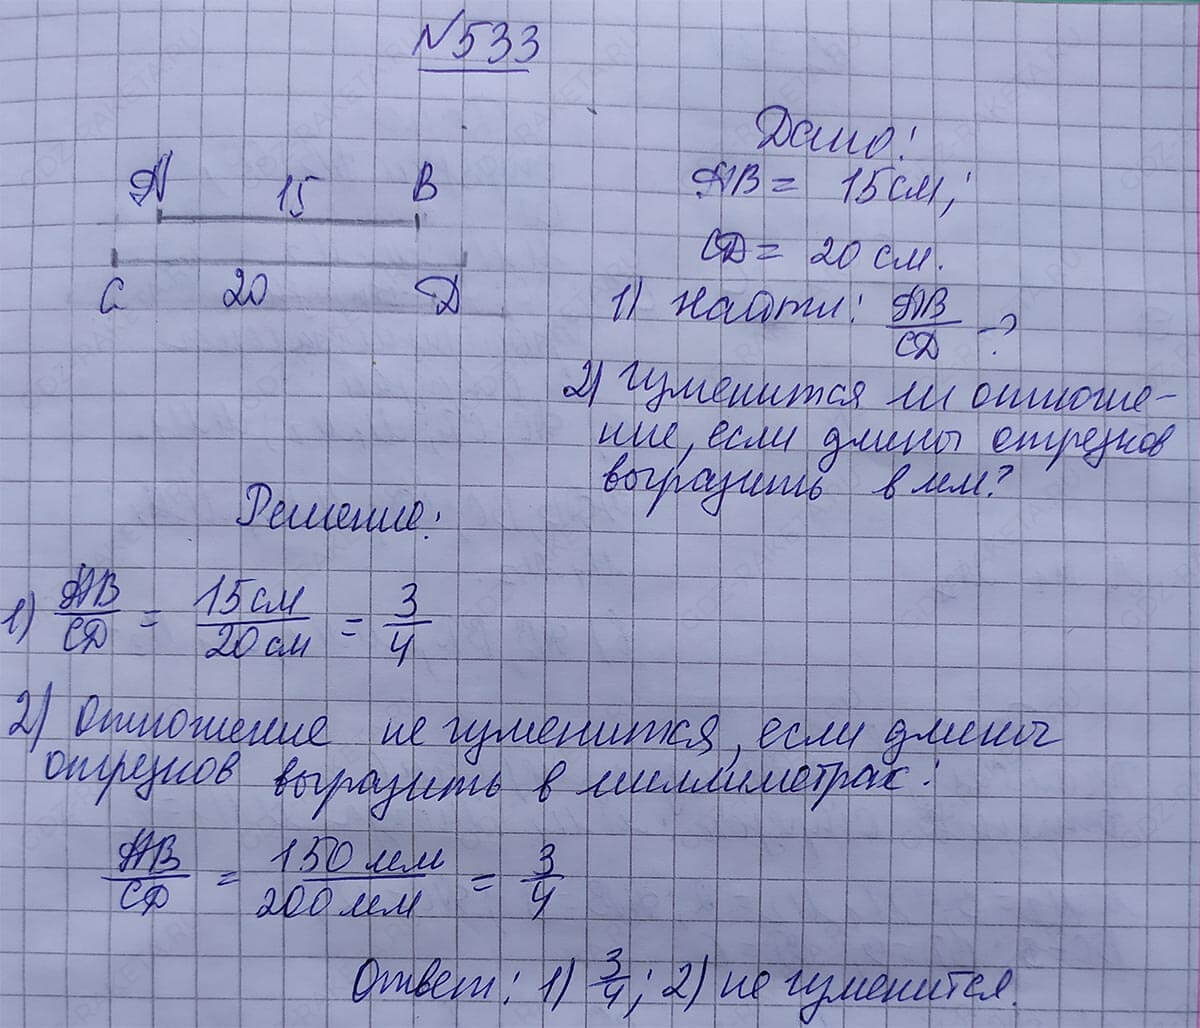 №533
A 15 B
C 20 D
Дано:
AB = 15 см;
CD = 20 см.
1) Найти: AB/CD - ?
2) Изменится ли отноше-
ние, если длины отрезков
выразить в мм?
Решение:
1) AB/CD = 15 см/20 см = 3/4
2) Отношение не изменится, если длины
отрезков выразить в миллиметрах:
AB/CD = 150 мм/200 мм = 3/4
Ответ: 1) 3/4; 2) не изменится.